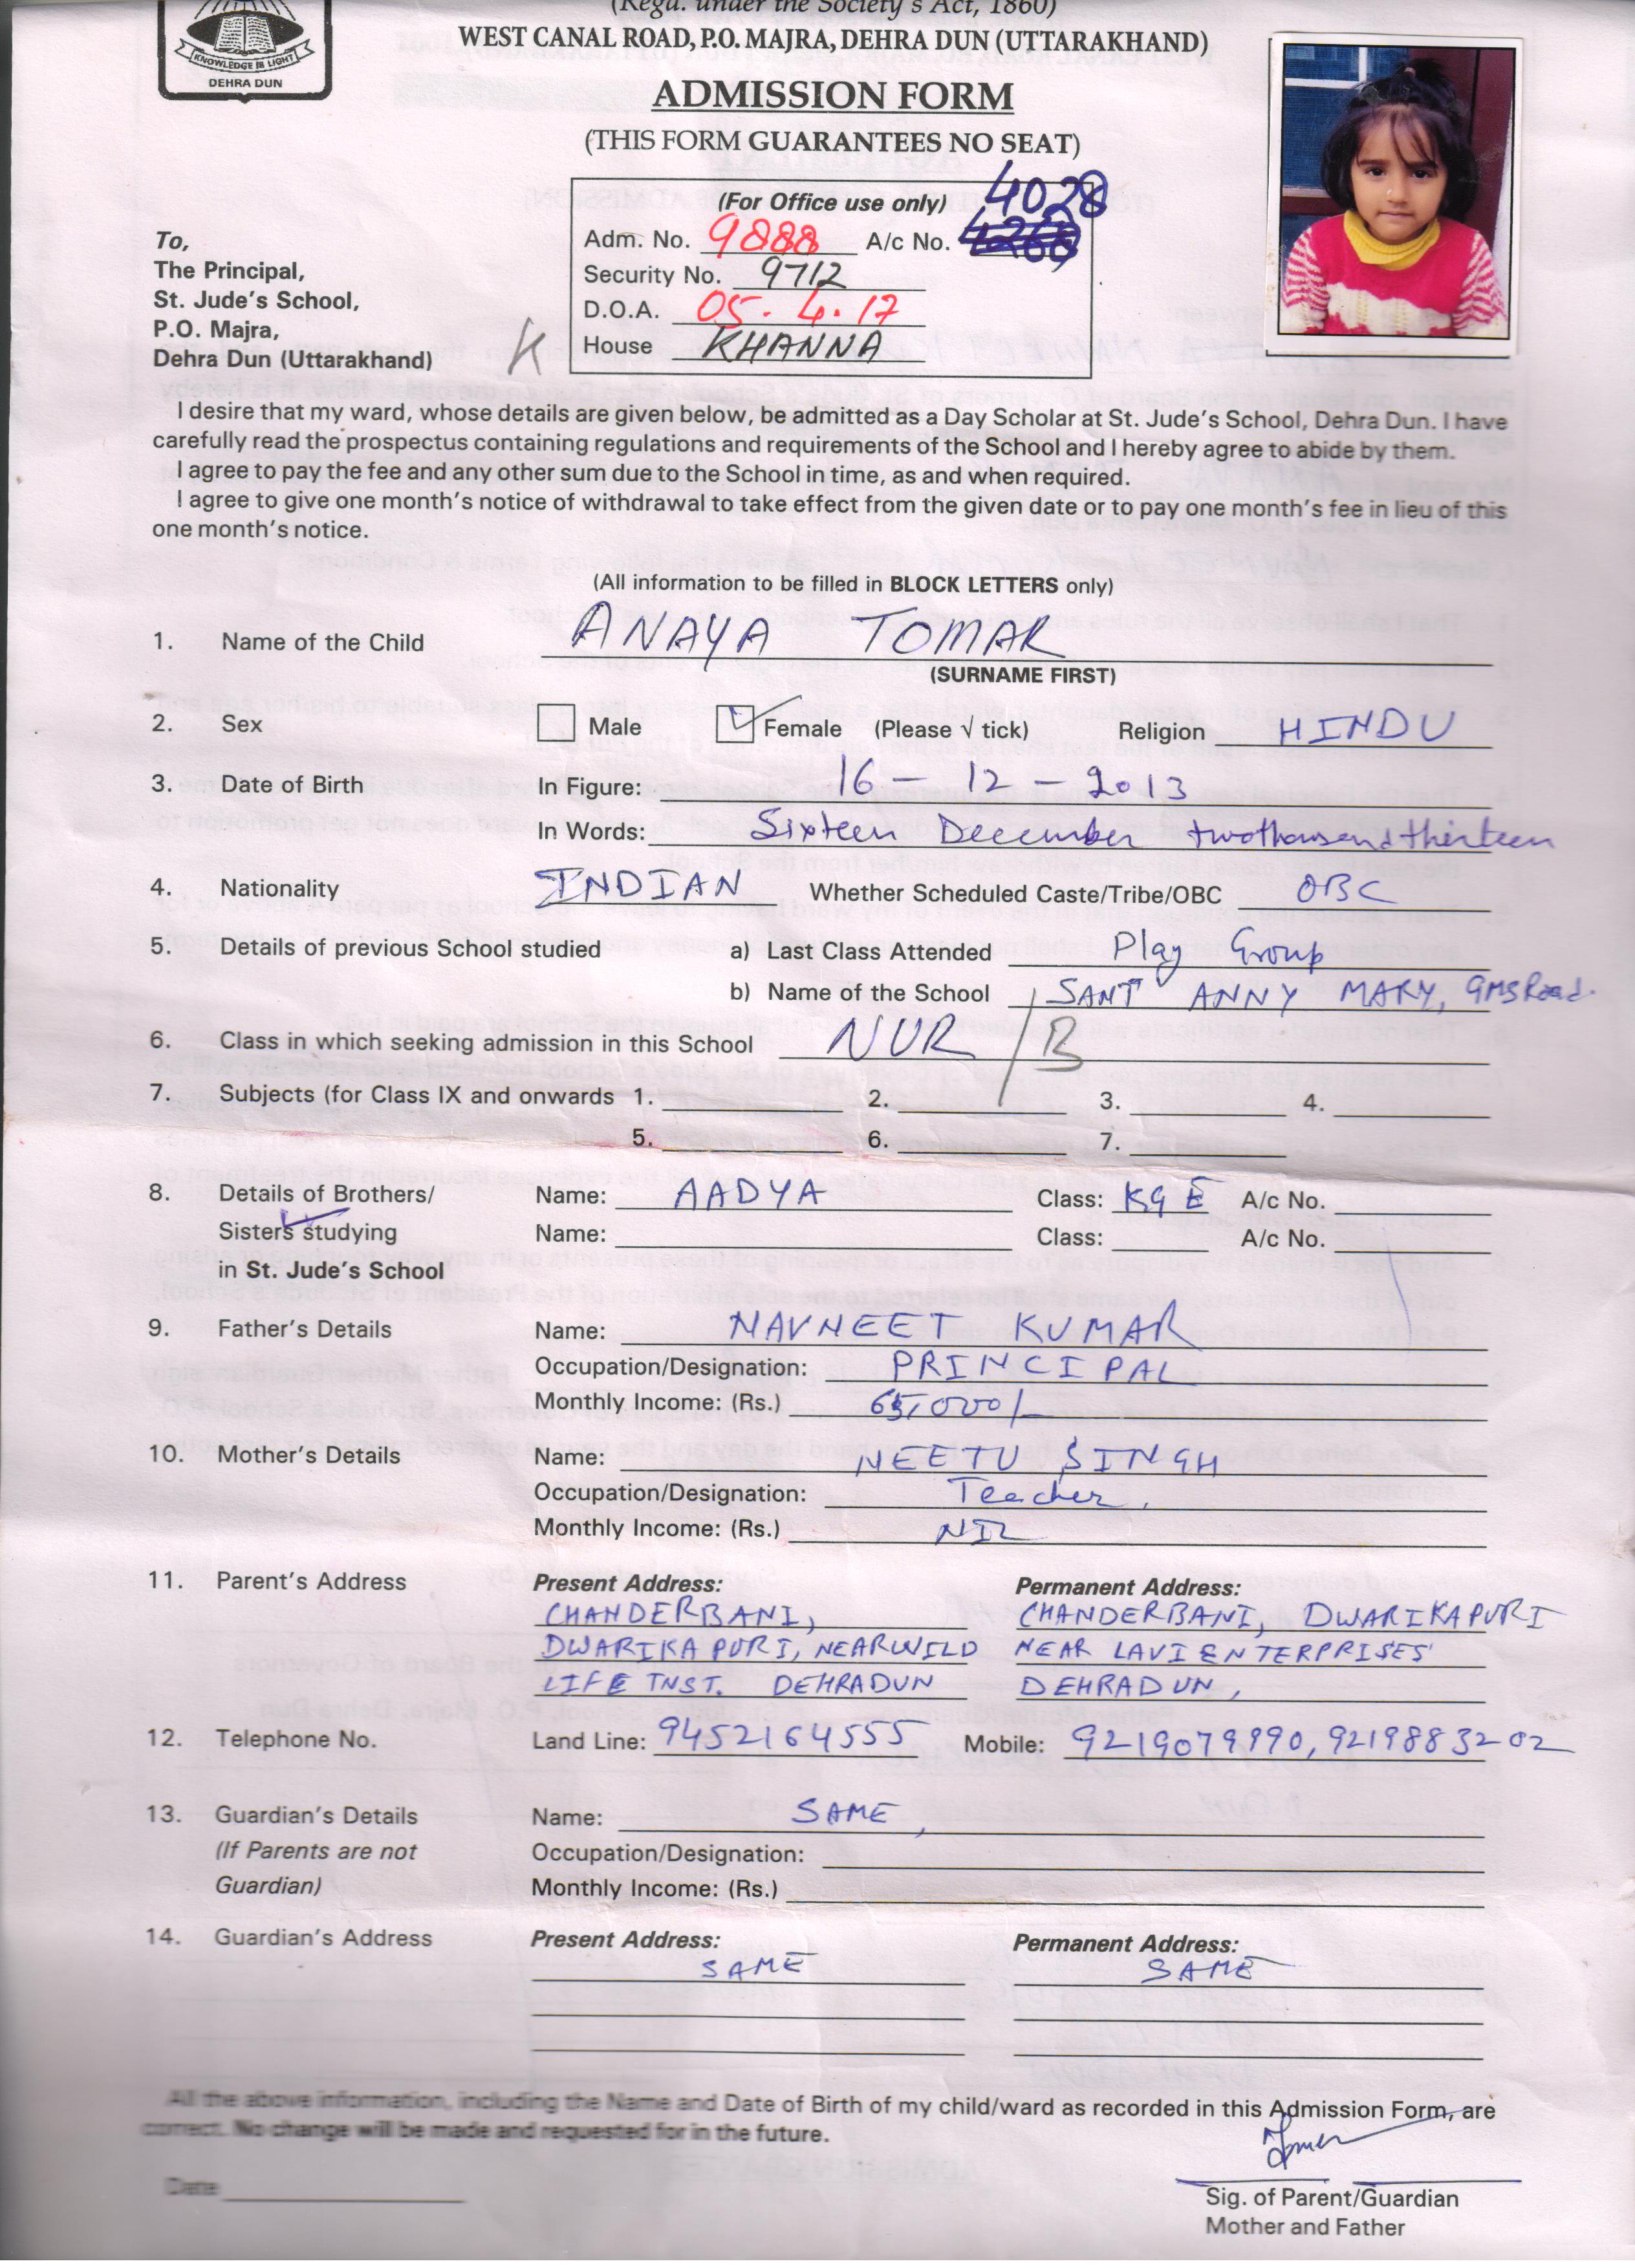 (Regd. under the Society's Act, 1860)
WEST CANAL ROAD, P.O. MAJRA, DEHRA DUN (UTTARAKHAND)
KNOWLEDGE IS LIGHT
DEHRA DUN
ADMISSION FORM
(THIS FORM GUARANTEES NO SEAT)
4028
(For Office use only)
Adm. No. 9888 A/c No.
Security No. 9712
D.O.A. 05.4.17
House KHANNA
To,
The Principal,
St. Jude's School,
P.O. Majra,
Dehra Dun (Uttarakhand)
K
I desire that my ward, whose details are given below, be admitted as a Day Scholar at St. Jude's School, Dehra Dun. I have
carefully read the prospectus containing regulations and requirements of the School and I hereby agree to abide by them.
I agree to pay the fee and any other sum due to the School in time, as and when required.
I agree to give one month's notice of withdrawal to take effect from the given date or to pay one month's fee in lieu of this
one month's notice.
(All information to be filled in BLOCK LETTERS only)
1. Name of the Child ANAYA TOMAR
(SURNAME FIRST)
2. Sex Male Female (Please √ tick) Religion HINDU
3. Date of Birth In Figure: 16 - 12 - 2013
In Words: Sixteen December twothousand thirteen
4. Nationality INDIAN Whether Scheduled Caste/Tribe/OBC OBC
5. Details of previous School studied a) Last Class Attended Play Group
b) Name of the School SANT ANNY MARY, GMS Road.
6. Class in which seeking admission in this School NUR / B
7. Subjects (for Class IX and onwards 1. 2. 3. 4.
5. 6. 7.
8. Details of Brothers/ Name: AADYA Class: KG E A/c No.
Sisters studying Name: Class: A/c No.
in St. Jude's School
9. Father's Details Name: NAVNEET KUMAR
Occupation/Designation: PRINCIPAL
Monthly Income: (Rs.) 65,000/-
10. Mother's Details Name: NEETU SINGH
Occupation/Designation: Teacher,
Monthly Income: (Rs.) NIL
11. Parent's Address Present Address: Permanent Address:
CHANDERBANI, CHANDERBANI, DWARIKAPURI
DWARIKA PURI, NEAR WILD NEAR LAVI ENTERPRISES
LIFE INST. DEHRADUN DEHRADUN,
12. Telephone No. Land Line: 9452164555 Mobile: 9219079990, 9219883202
13. Guardian's Details Name: SAME,
(If Parents are not Occupation/Designation:
Guardian) Monthly Income: (Rs.)
14. Guardian's Address Present Address: Permanent Address:
SAME SAME
All the above information, including the Name and Date of Birth of my child/ward as recorded in this Admission Form, are
correct. No change will be made and requested for in the future.
Date
Sig. of Parent/Guardian
Mother and Father